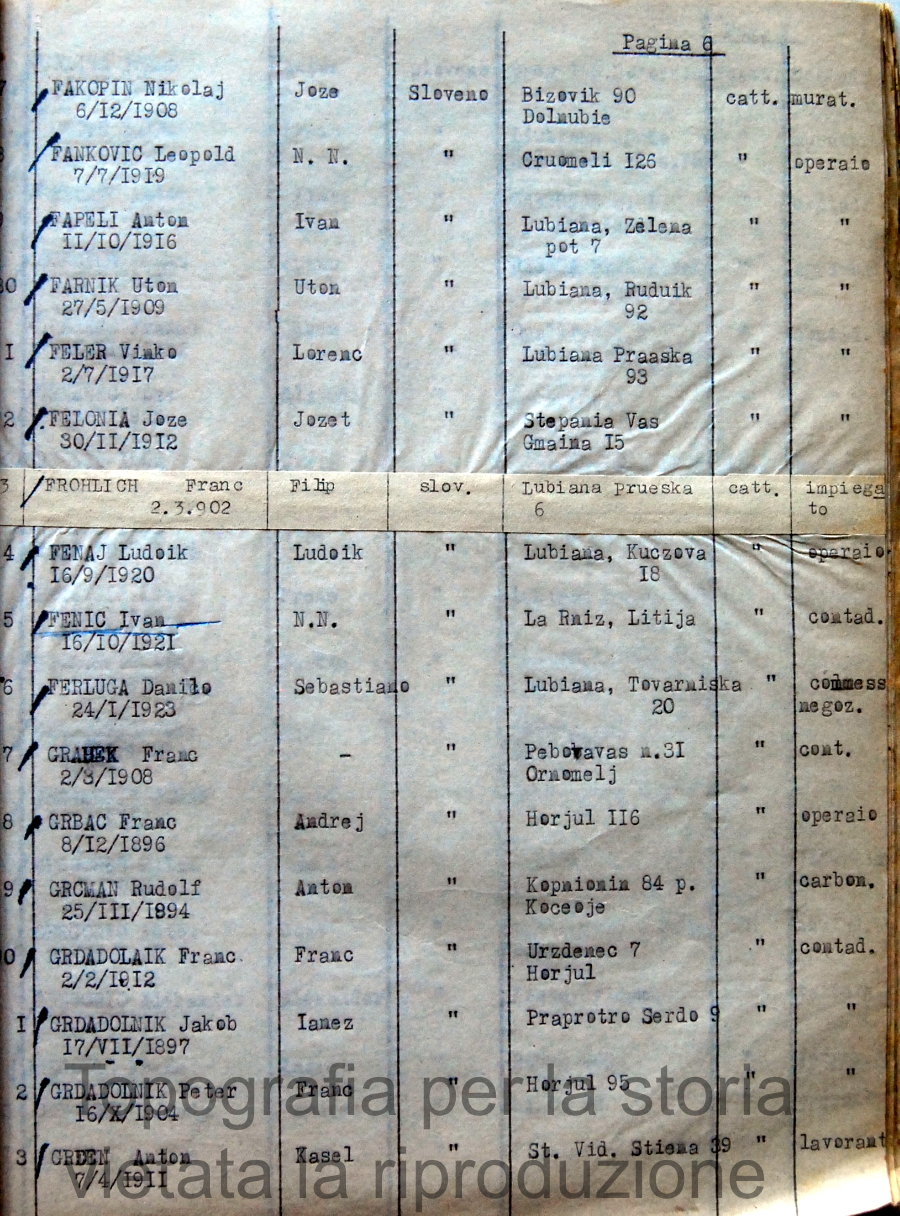 Pagina 6
7 FAKOPIN Nikolaj Joze Sloveno Bizovik 90 catt. murat.
6/12/1908 Dolmubie
FANKOVIC Leopold N. N. " Cruomeli I26 " operaio
7/7/1919
FAPELI Anton Ivan " Lubiana, Zelena " "
II/IO/I9I6 pot 7
30 FARNIK Uton Uton " Lubiana, Ruduik " "
27/5/1909 92
I FELER Vinko Lorenc " Lubiana Praaska " "
2/7/1917 93
2 FELONIA Joze Jozet " Stepania Vas " "
30/II/I9I2 Gmaina I5
3 FROHLICH Franc Filip slov. Lubiana prueska catt. impiega
2.3.902 6 to
4 FENAJ Ludoik Ludoik " Lubiana, Kuczova " operaio
I6/9/I920 I8
5 FENIC Ivan N.N. " La Rniz, Litija " contad.
I6/IO/I92I
6 FERLUGA Danilo Sebastiano " Lubiana, Tovarniska " commess
24/I/I923 20 negoz.
7 GRAHEK Franc - " Pebotavas n.3I " cont.
2/3/1908 Ornomelj
8 GRBAC Franc Andrej " Horjul II6 " operaio
8/I2/I896
9 GRCMAN Rudolf Anton " Kopnionin 84 p. " carbon.
25/III/I894 Koceoje
0 GRDADOLAIK Franc Franc " Urzdenec 7 " contad.
2/2/I9I2 Horjul
I GRDADOLNIK Jakob Ianez " Praprotro Serdo 9 " "
I7/VII/I897
2 GRDADOLNIK Peter Franc " Horjul 95 " "
I6/X/I904
3 GRDEN Anton Kasel " St. Vid. Stiena 39 " lavorant
7/4/I9II
Topografia per la storia
vietata la riproduzione